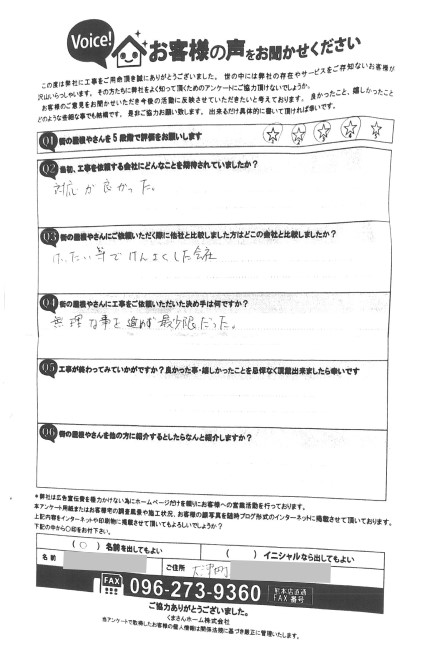 Voice!
お客様の声をお聞かせください
この度は弊社に工事をご用命頂き誠にありがとうございました。世の中には弊社の存在やサービスをご存知ないお客様が
沢山いらっしゃいます。その方たちに弊社をよく知って頂くためのアンケートにご協力頂けないでしょうか。
お客様のご意見をお聞かせいただき今後の活動に反映させていただきたいと考えております。良かったこと、嬉しかったこと
どのような些細な事でも結構です。是非ご協力お願い致します。出来るだけ具体的に書いて頂ければ幸いです。
Q1 街の屋根やさんを5段階で評価をお願いします
Q2 当初、工事を依頼する会社にどんなことを期待されていましたか?
対応が良かった。
Q3 街の屋根やさんにご依頼いただく際に他社と比較しました方はどこの会社と比較しましたか?
けんさくした会社
Q4 街の屋根やさんに工事をご依頼いただいた決め手は何ですか?
無理な事を進めず最少限だった。
Q5 工事が終わってみていかがですか?良かった事・嬉しかったことを忌憚なく頂戴出来ましたら幸いです
Q6 街の屋根やさんを他の方に紹介するとしたらなんと紹介しますか?
*弊社は広告宣伝費を極力かけない為にホームページだけを頼りにお客様への営業活動を行っております。
本アンケート用紙またはお客様宅の調査風景や施工状況、お客様の顔写真を随時ブログ形式のインターネットに掲載させて頂いております。
上記内容をインターネットや印刷物に掲載させて頂いてもよろしいでしょうか?
下記の中から○印をお付下さい。
( ○ ) 名前を出してもよい ( ) イニシャルなら出してもよい
名前 ご住所 大津町
FAX 096-273-9360 熊本店直通 FAX番号
ご協力ありがとうございました。
くまさんホーム株式会社
当アンケートで取得したお客様の個人情報は関係法規に基づき厳正に管理いたします。